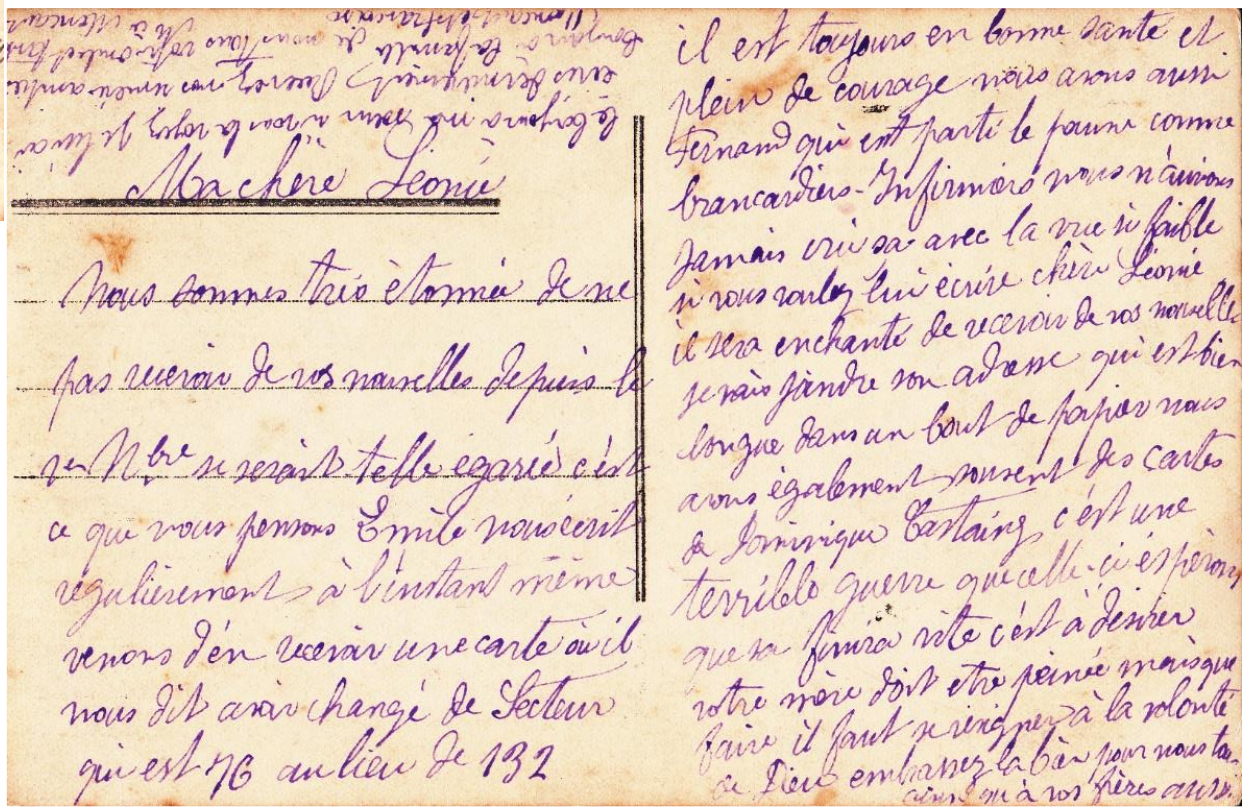 Ma chère Léonie
Nous sommes très étonnée de ne
pas recevoir de vos nouvelles depuis le
1er Nbre se serait telle égarée c'est
ce que nous pensons Emile nous écrit
régulièrement à l'instant même
venons d'en recevoir une carte où il
nous dit avoir changé de Secteur
qui est 76 au lieu de 132
il est toujours en bonne santé et
plein de courage nous avons aussi
Fernand qui est parti le jaune comme
brancardiers-Infirmiers nous n'aurions
Jamais cru sa avec la vue si faible
si vous voulez lui écrire chère Léonie
il sera enchanté de recevoir de vos nouvelles
je vais joindre son adresse qui est bien
longue dans un bout de papier nous
avons également souvent des cartes
de Dominique Castaing c'est une
terrible guerre que celle-ci éspérons
que sa finira vite c'est à désirer
votre mère doit etre peinée mais que
faire il faut se résigner à la volonté
de Dieu embrassez la bien pour nous
ainsi qu'à vos frères aussi
le bonjour à ma soeur si vous la voyez je lui ai
écris dernièrement Recevez nos
bonjour à la famille de nous tous